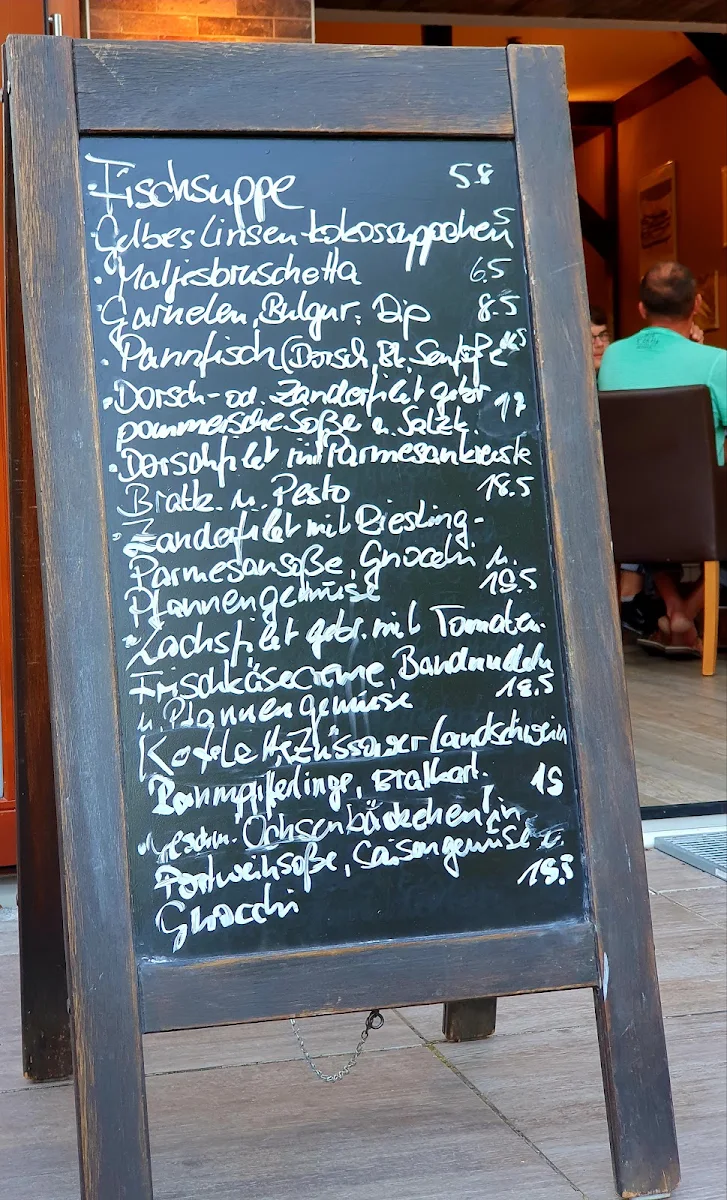 Fischsuppe 5.8
Gelbes Linsen-kokossüppchen 5
Matjesbruschetta 6.5
Garnelen, Bulgur, Dip 8.5
Pannfisch (Dorsch, Bk, Senfsoße
Dorsch- od. Zanderfilet gebr
pommersche Soße u. Salzk.
Dorschfilet mit Parmesankruste
Bratk. u. Pesto 18.5
Zanderfilet mit Riesling-
Parmesansoße, Gnocchi u.
Pfannengemüse 18.5
Lachsfilet gebr. mit Tomaten-
Frischkäsecreme, Bandnudeln
u. Pfannengemüse 18.5
Kotelett, Züssower Landschwein
Rahmpfifferlinge, Bratkart.
geschm. Ochsenbäckchen in
Portweinsoße, Saisongemüse u.
Gnocchi 18.5